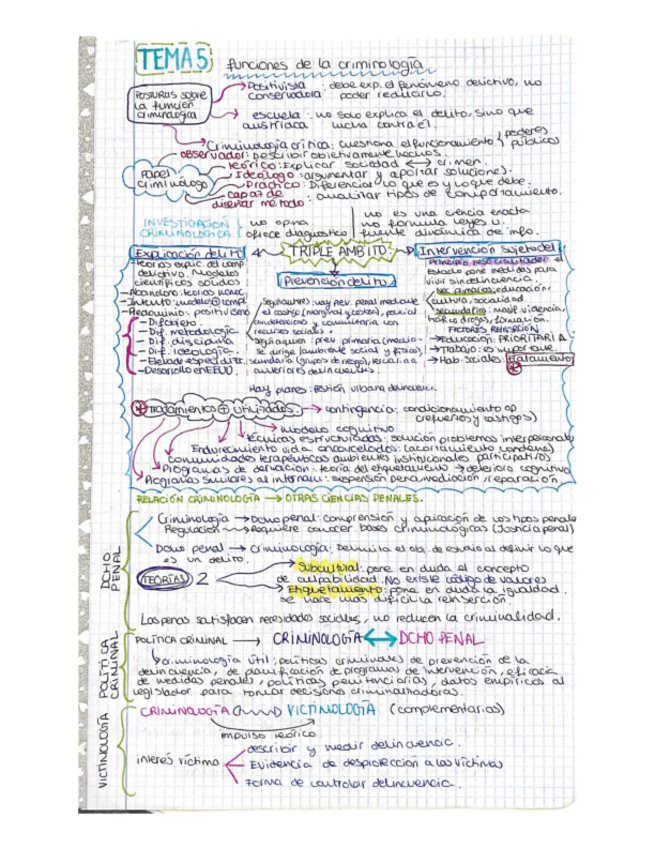 TEMA 5 funciones de la criminología
Posturas sobre la función criminología
Positivista conservadora: debe exp. el fenómeno delictivo, no poder reducirlo.
escuela austríaca: no solo explica el delito, sino que lucha contra él.
Criminología crítica: cuestiona el funcionamiento (poderes públicos)
Papel criminólogo
observador: describir objetivamente hechos.
teórico: Explicar sociedad ↔ crimen.
Ideólogo: (argumentar y aportar soluciones).
Práctico: Diferenciar lo que es y lo que debe.
capaz de diseñar método: analizar tipos de comportamiento.
INVESTIGACIÓN CRIMINOLÓGICA
no opina
ofrece diagnóstico
no es una ciencia exacta
no formula leyes u.
fuente dinámica de info.
Explicación delito ← TRIPLE ÁMBITO → Intervención sujeto del.
Prevención delito
-Teorías explic. del comp delictivo. Modelos científicos sólidos
-Abandono: teorías
-Intento: modelo comp.
-Predominio: positivismo
- Dif. objeto
- Dif. metodología
- Dif. disciplina
- Dif. ideología.
- Elevado espec.
- Desarrollo en EEUU.
prev. penal mediante el castigo
prev. primaria
se dirige (ambiente social y físico), secundaria
anteriores delincuentes.
Principio resocializador: el Estado pone medidas para vivir sin delincuencia.
educación, cultura, socialidad.
violencia,
drogas, formación.
FACTORES REINSERCIÓN
→ Educación: PRIORITARIA
→ Trabajo:
→ Hab. sociales: tratamiento
Hay planes: gestión urbana delincuencia.
Tratamientos + utilizados → contingencia: condicionamiento op (refuerzos y castigos)
modelo cognitivo
técnicas estructuradas: solución problemas interpersonales
Endurecimiento vida encarcelados: (acortamiento condena)
comunidades terapéuticas ambientes institucionales participativos
Programas de derivación: teoría del etiquetamiento → deterioro cognitivo
Programas similares al internam: suspensión pena, mediación, reparación
RELACIÓN CRIMINOLOGÍA → OTRAS CIENCIAS PENALES.
DCHO PENAL
Criminología → Dcho penal: comprensión y aplicación de los tipos penales
Regulación → Requiere conocer bases criminológicas (Justicia penal)
Dcho penal → criminología: Delimita el obj. de estudio al definir lo que es un delito.
TEORÍAS 2
Subcultural: pone en duda el concepto de culpabilidad. No existe código de valores
Etiquetamiento: pone en duda la igualdad. se hace más difícil la reinserción.
Las penas satisfacen necesidades sociales, no reducen la criminalidad.
POLÍTICA CRIMINAL
POLÍTICA CRIMINAL → CRIMINOLOGÍA ↔ DCHO PENAL
criminología útil: políticas criminales de prevención de la
delincuencia, de planificación de programas de intervención, eficacia
de medidas penales, políticas penitenciarias, datos empíricos al
legislador para tomar decisiones criminalizadoras.
VICTIMOLOGÍA
CRIMINOLOGÍA VICTIMOLOGÍA (complementarias)
impulso teórico
interés víctima
describir y medir delincuencia.
Evidencia de desprotección a las víctimas
Forma de controlar delincuencia.